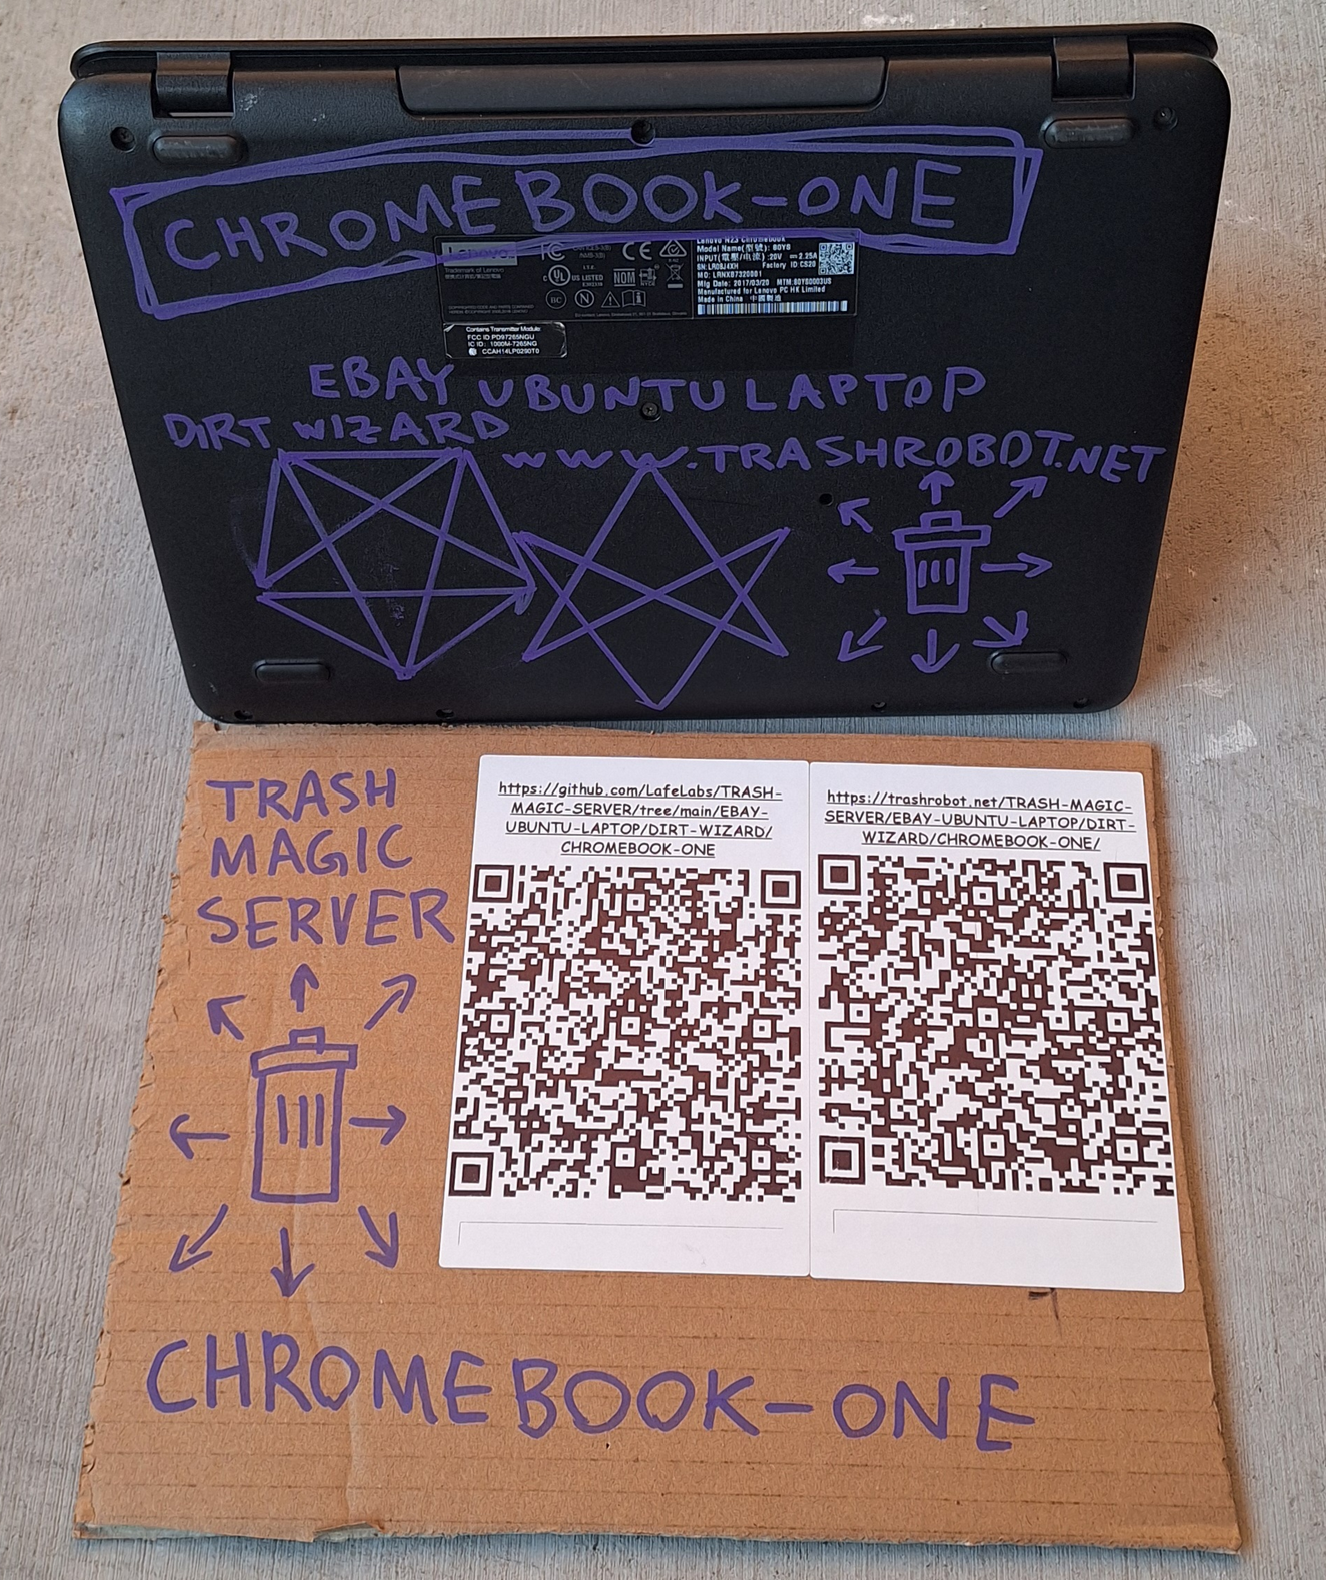 CHROMEBOOK-ONE
Lenovo
Trademark of Lenovo
FC
CE
UL
US LISTED
I.T.E.
NOM
NYCE
BC
N
Lenovo N23 Chromebook
Model Name(型號): 80YS
INPUT(電壓/电流) :20V ⎓ 2.25A
SN: LR08J4XH Factory ID: CS20
MO: LRNXB7320001
Mfg Date: 2017/03/20 MTM:80YS0003US
Manufactured for Lenovo PC HK Limited
Made in China 中國製造
Contains Transmitter Module:
FCC ID PD97265NGU
IC ID: 1000M-7265NG
CCAH14LP0290T0
EBAY UBUNTU LAPTOP
DIRT WIZARD
WWW.TRASHROBOT.NET
TRASH
MAGIC
SERVER
https://github.com/LafeLabs/TRASH-
MAGIC-SERVER/tree/main/EBAY-
UBUNTU-LAPTOP/DIRT-WIZARD/
CHROMEBOOK-ONE
https://trashrobot.net/TRASH-MAGIC-
SERVER/EBAY-UBUNTU-LAPTOP/DIRT-
WIZARD/CHROMEBOOK-ONE/
CHROMEBOOK-ONE